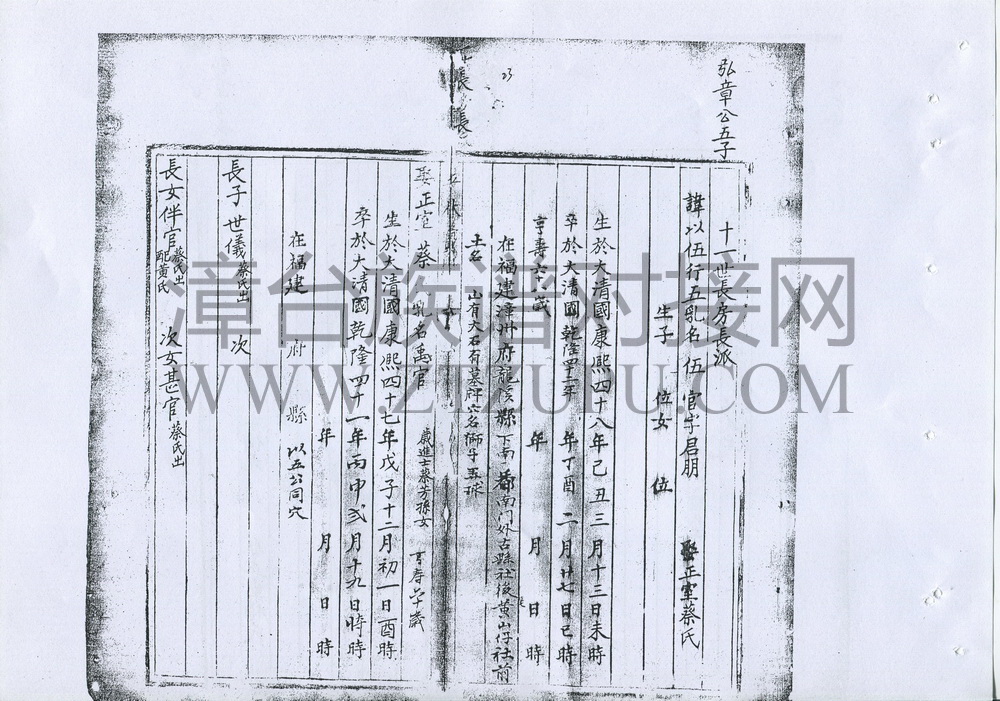 弘章公五子
23
十一世長房長派
諱以伍行五乳名伍 官字君朋 娶正室蔡氏
生子 位女 位
生於大清國康熙四十八年己丑三月十三日未時
卒於大清國乾隆四十二年丁酉二月廿七日巳時
享壽六十八歲 年 月 日 時
在福建漳州府龍溪縣下南 都南门外古縣社後黄山仔社前
土名 山有大石有墓碑穴名獅子玉球
娶正室 蔡 乳名萬官 歲進士蔡芳孫女 享壽 歲
生於大清國康熙四十七年戊子十二月初一日酉時
卒於大清國乾隆四十一年丙申弍月十九日時
年 月 日 時
在福建 府 縣 以五公同穴
長子世儀蔡氏出 次
長女伴官蔡氏出配黃氏 次女甚官蔡氏出
漳台族谱对接网
WWW.ZTZUPU.COM